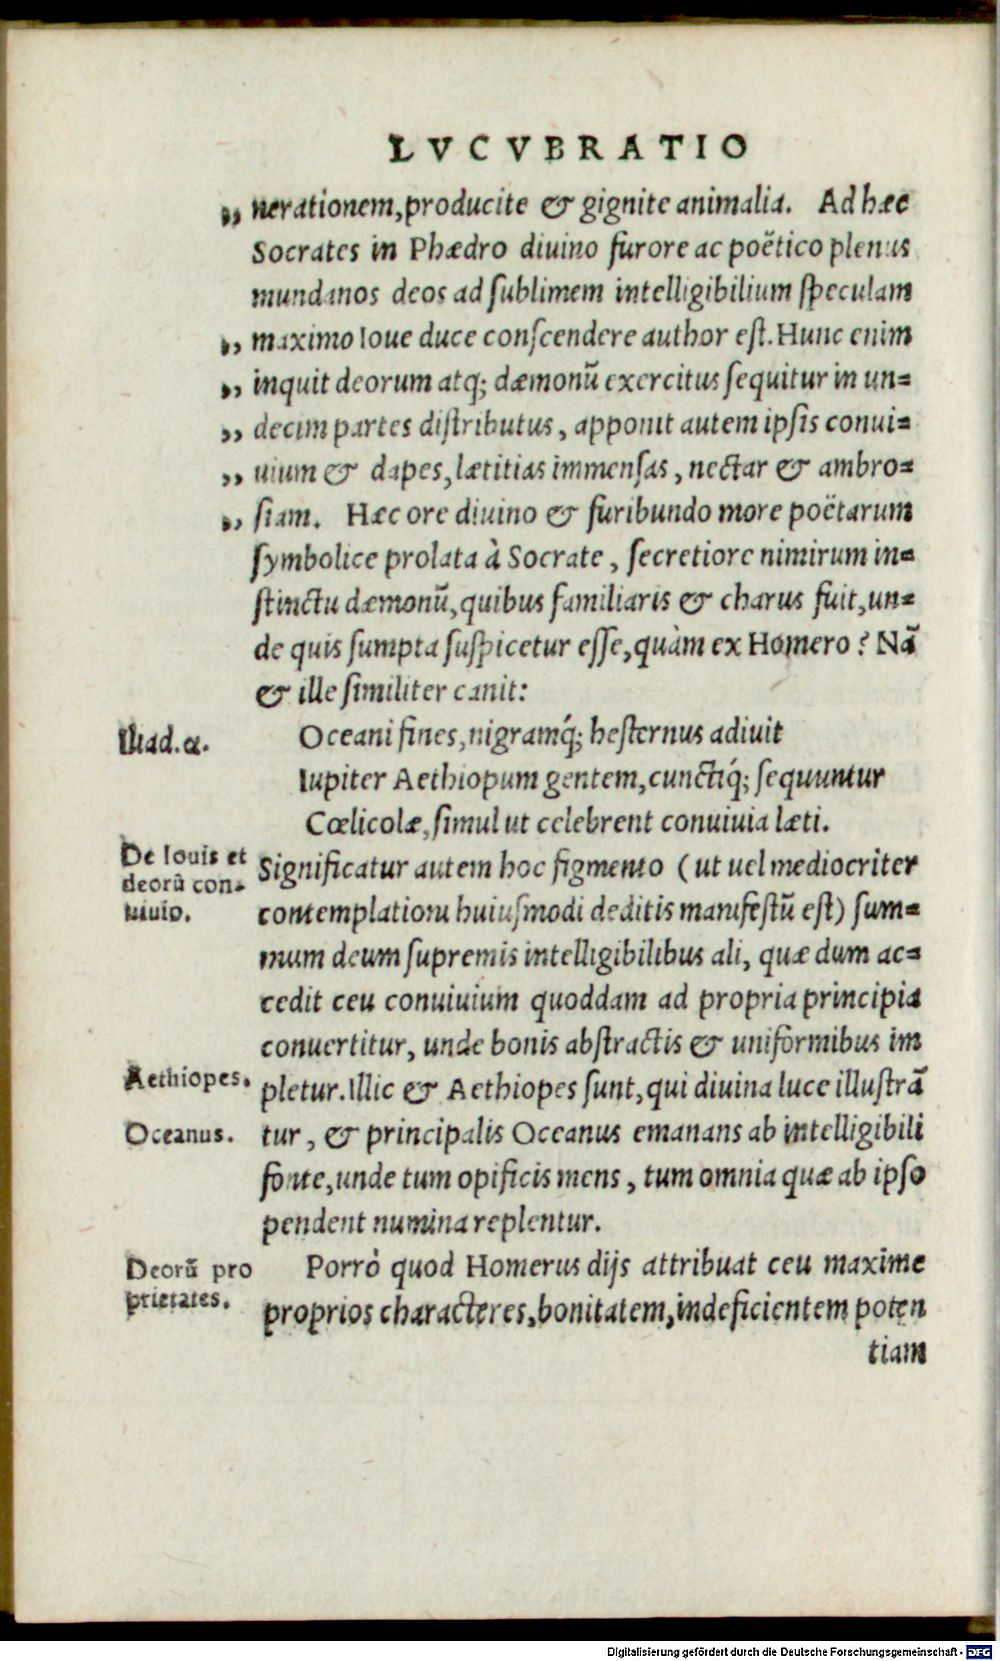 LVCVBRATIO
„ nerationem, producite & gignite animalia. Ad hæc
Socrates in Phædro diuino furore ac poëtico plenus
mundanos deos ad sublimem intelligibilium speculam
„ maximo Ioue duce conscendere author est. Hunc enim
„ inquit deorum atq; dæmonũ exercitus sequitur in un=
„ decim partes distributus, apponit autem ipsis conui=
„ uium & dapes, lætitias immensas, nectar & ambro=
„ siam. Hæc ore diuino & furibundo more poëtarum
symbolice prolata à Socrate, secretiore nimirum in=
stinctu dæmonũ, quibus familiaris & charus fuit, un=
de quis sumpta suspicetur esse, quàm ex Homero? Nã
& ille similiter canit:
Iliad. α.
Oceani fines, nigramq́; hesternus adiuit
Iupiter Aethiopum gentem, cunctiq́; sequuntur
Cœlicolæ, simul ut celebrent conuiuia læti.
De Iouis et
deorũ con-
uiuio.
Significatur autem hoc figmento (ut uel mediocriter
contemplationi huiusmodi deditis manifestũ est) sum=
mum deum supremis intelligibilibus ali, quæ dum ac=
cedit ceu conuiuium quoddam ad propria principia
conuertitur, unde bonis abstractis & uniformibus im
Aethiopes.
pletur. Illic & Aethiopes sunt, qui diuina luce illustrã
Oceanus.
tur, & principalis Oceanus emanans ab intelligibili
fonte, unde tum opificis mens, tum omnia quæ ab ipso
pendent numina replentur.
Deorũ pro
prietates.
Porrò quod Homerus dijs attribuat ceu maxime
proprios characteres, bonitatem, indeficientem poten
tiam
Digitalisierung gefördert durch die Deutsche Forschungsgemeinschaft - DFG